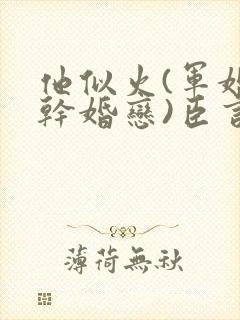 他似火(軍婚
幹婚戀)臣言
薄荷無秋